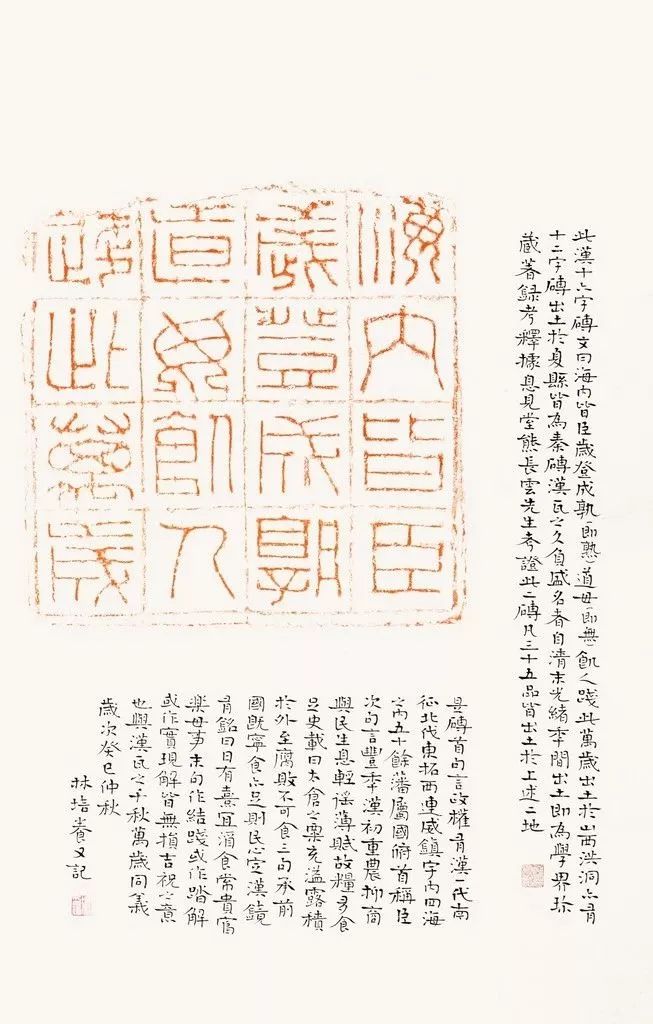 海内皆臣
歲登成孰
道毋飢人
踐此萬歲
此漢十六字磚文曰海内皆臣歲登成孰(即熟)道毋(即無)飢人踐此萬歲出土於山西洪洞亦有
十二字磚出土於夏縣皆為秦磚漢瓦之久負盛名者自清末光緒季間出土即為學界珍
藏著録考釋據息見堂熊長雲先生考證此二磚凡三十五品皆出土於上述二地
是磚首句言政權有漢一代南
征北伐東拓西連威鎮宇内四海
之内五十餘藩屬國俯首稱臣
次句言豐季漢初重農抑商
與民生息輕徭薄賦故糧多食
足史載曰太倉之粟充溢露積
於外至腐敗不可食三句承前
國既寧食亦足則民心定漢鏡
有銘曰日有熹宜酒食常貴富
樂毋事末句作結踐或作踏解
或作實現解皆無損吉祝之意
也與漢瓦之千秋萬歲同義
歲次癸巳仲秋
林培養又記